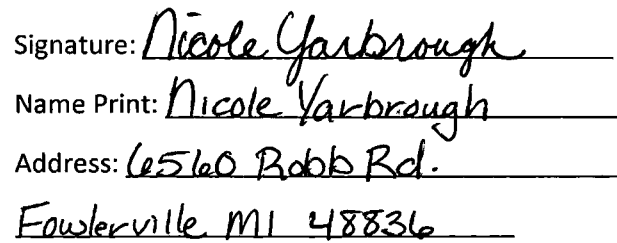 Signature: Nicole Yarbrough
Name Print: Nicole Yarbrough
Address: 6560 Robb Rd.
Fowlerville MI 48836